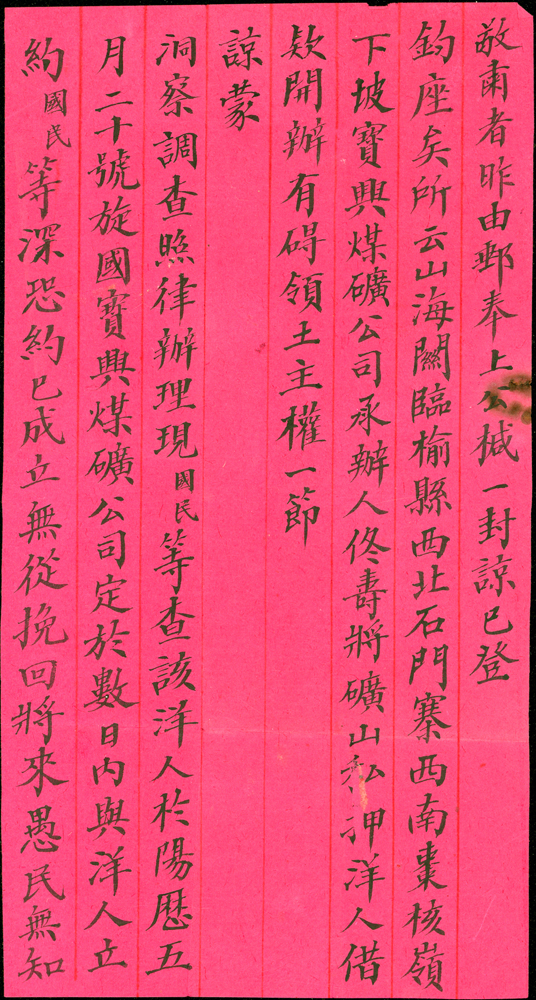 敬肅者昨由郵奉上公椷一封諒已登
鈞座矣所云山海關臨榆縣西北石門寨西南棗核嶺
下坡寶興煤礦公司承辦人佟壽將礦山私押洋人借
欵開辦有碍領土主權一節
諒蒙
洞察調查照律辦理現國民等查該洋人於陽曆五
月二十號旋國寶興煤礦公司定於數日內與洋人立
約國民等深恐約已成立無從挽回將來愚民無知